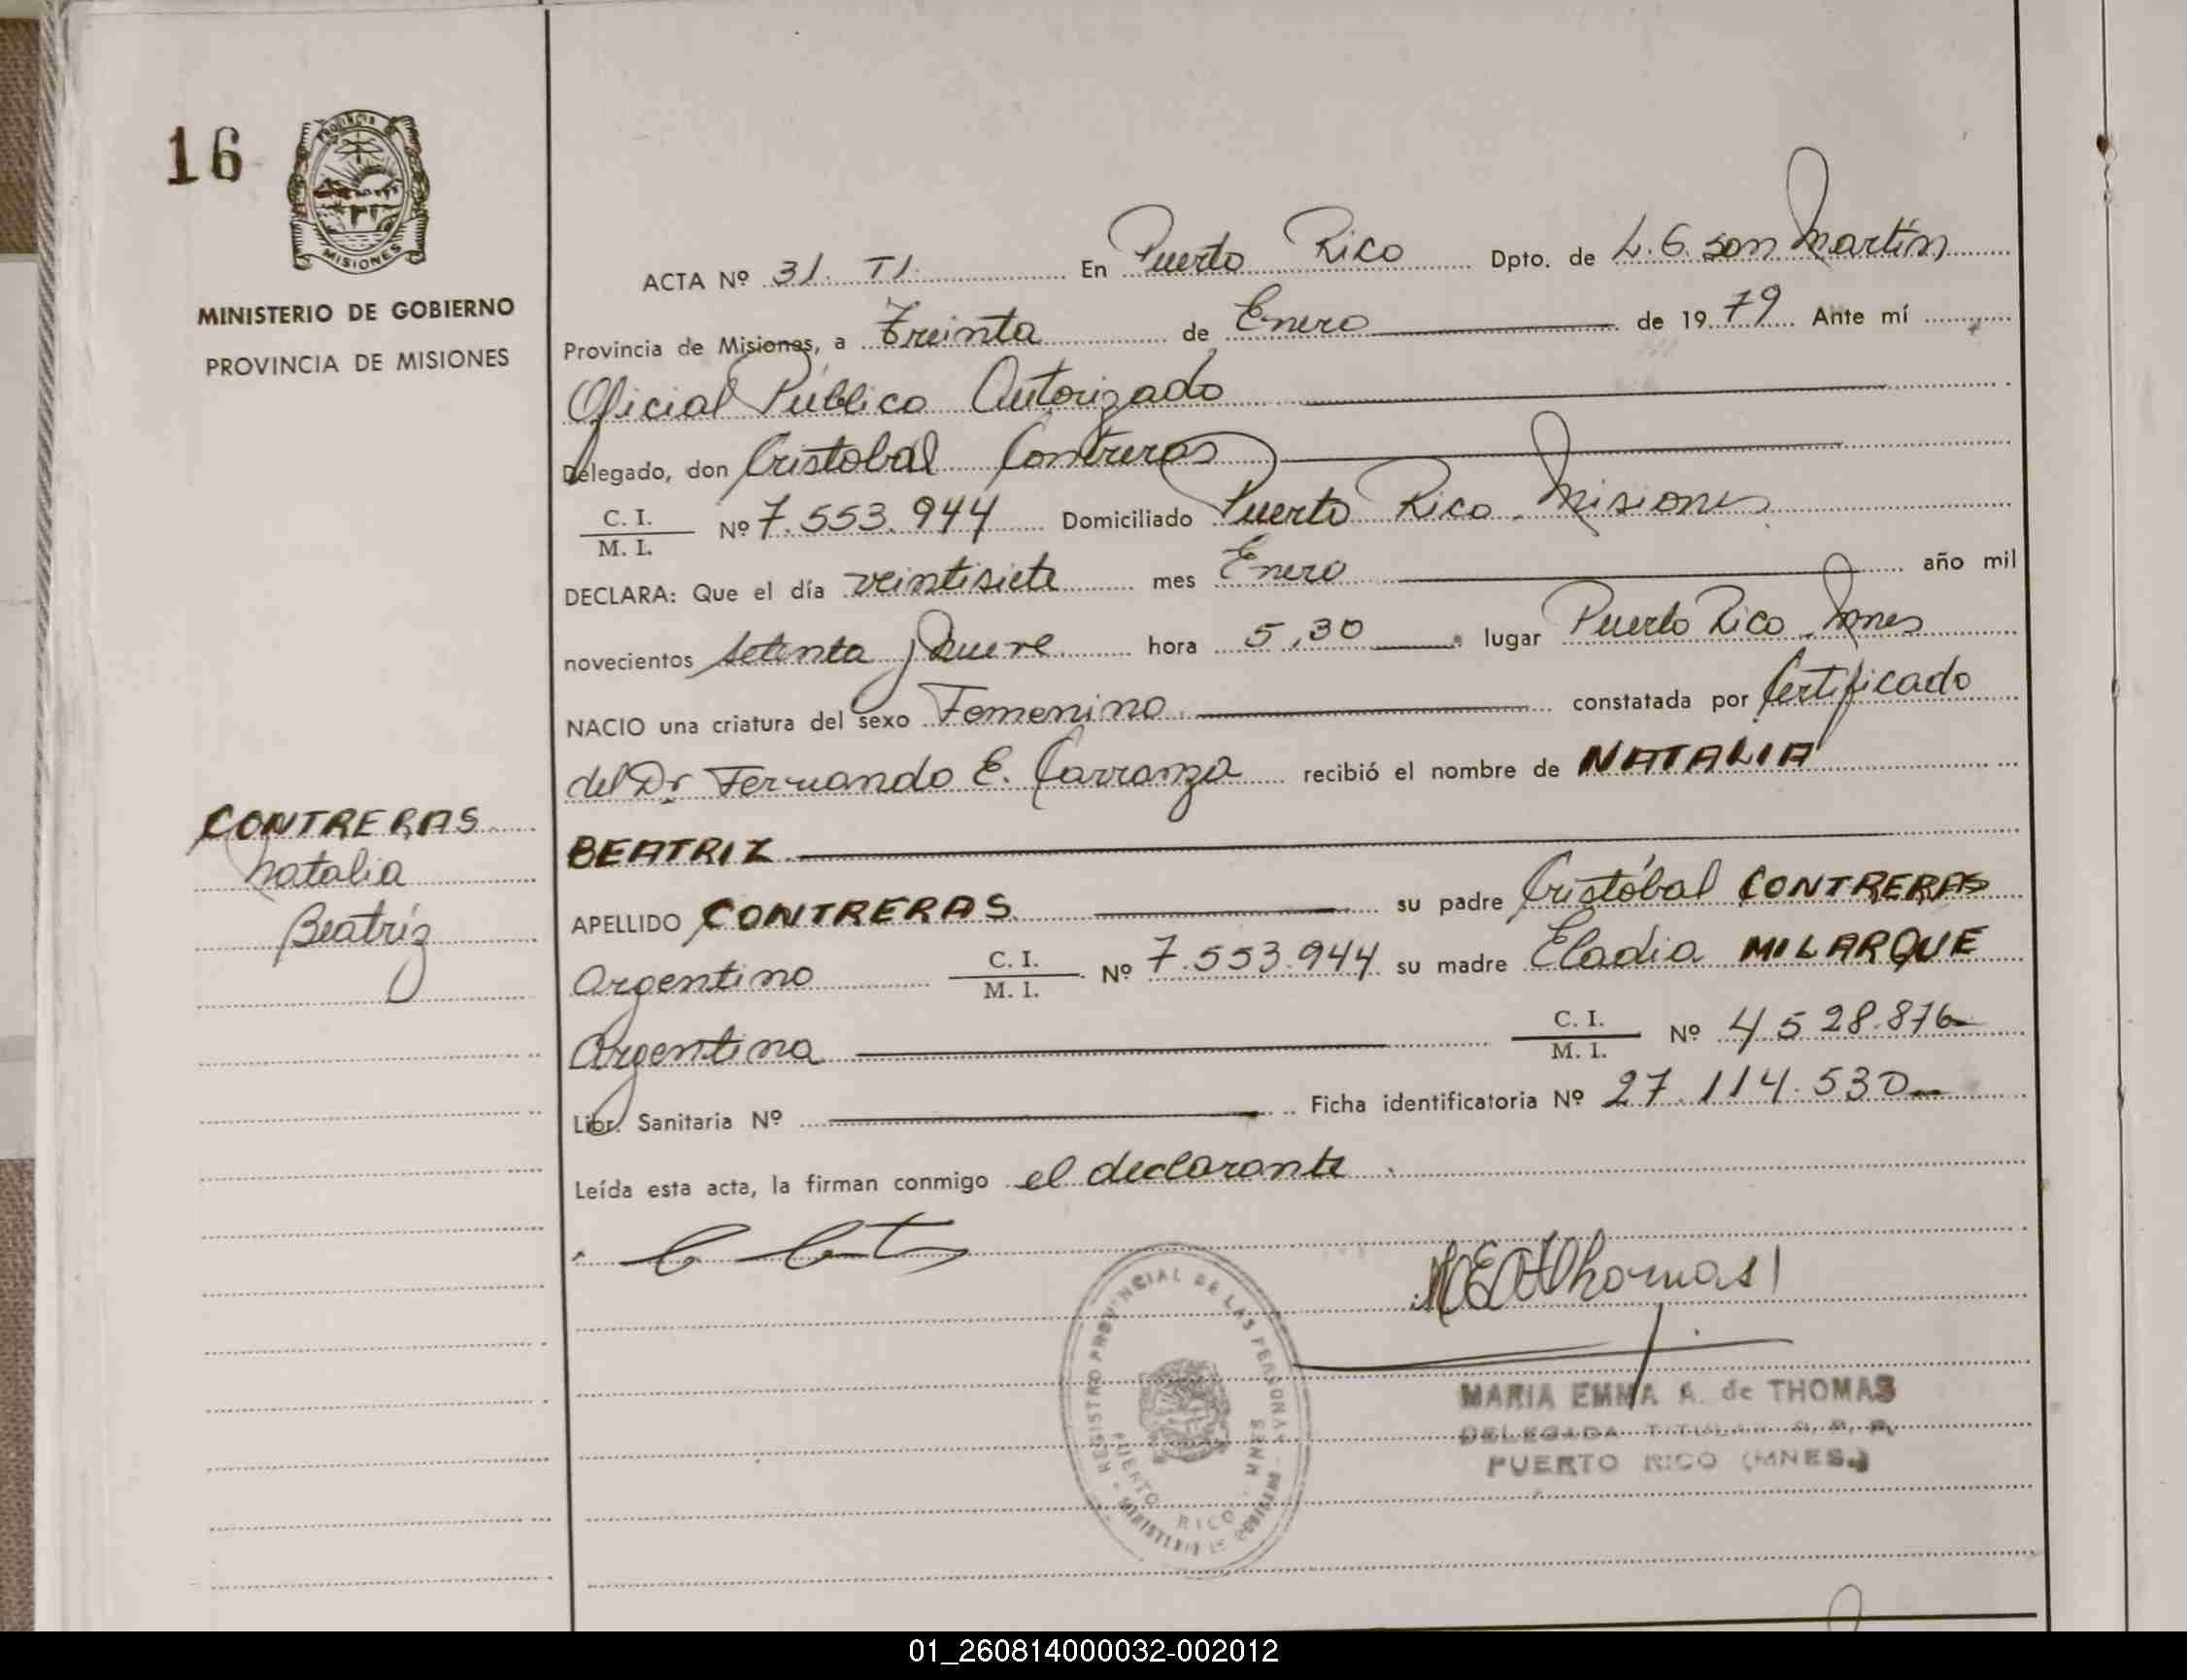 16
PROVINCIA
MISIONES
MINISTERIO DE GOBIERNO
PROVINCIA DE MISIONES
CONTRERAS
Natalia
Beatríz
ACTA Nº 31. TI. En Puerto Rico Dpto. de L. G. san Martín
Provincia de Misiones, a Treinta de Enero de 1979 Ante mí
Oficial Público Autorizado
Delegado, don Cristobal Contreras
C. I.
M. I. Nº 7.553.944 Domiciliado Puerto Rico - Misiones
DECLARA: Que el día veintisiete mes Enero año mil
novecientos setenta y nueve hora 5,30 lugar Puerto Rico - Mnes
NACIO una criatura del sexo Femenino. constatada por Certificado
del Dr Fernando E. Carranza recibió el nombre de NATALIA
BEATRIZ
APELLIDO CONTRERAS su padre Cristóbal CONTRERAS
Argentino C. I.
M. I. Nº 7.553.944 su madre Eladia MILARQUE
Argentina C. I.
M. I. Nº 4.528.876
Libr. Sanitaria Nº Ficha identificatoria Nº 27.114.530
Leída esta acta, la firman conmigo el declarante.
MEAThomas
REGISTRO PROVINCIAL DE LAS PERSONAS
MINISTERIO DE GOBIERNO
PUERTO RICO - MNES
MARIA EMMA A. de THOMAS
DELEGADA TITULAR R. P. P.
PUERTO RICO (MNES.)
01_260814000032-002012